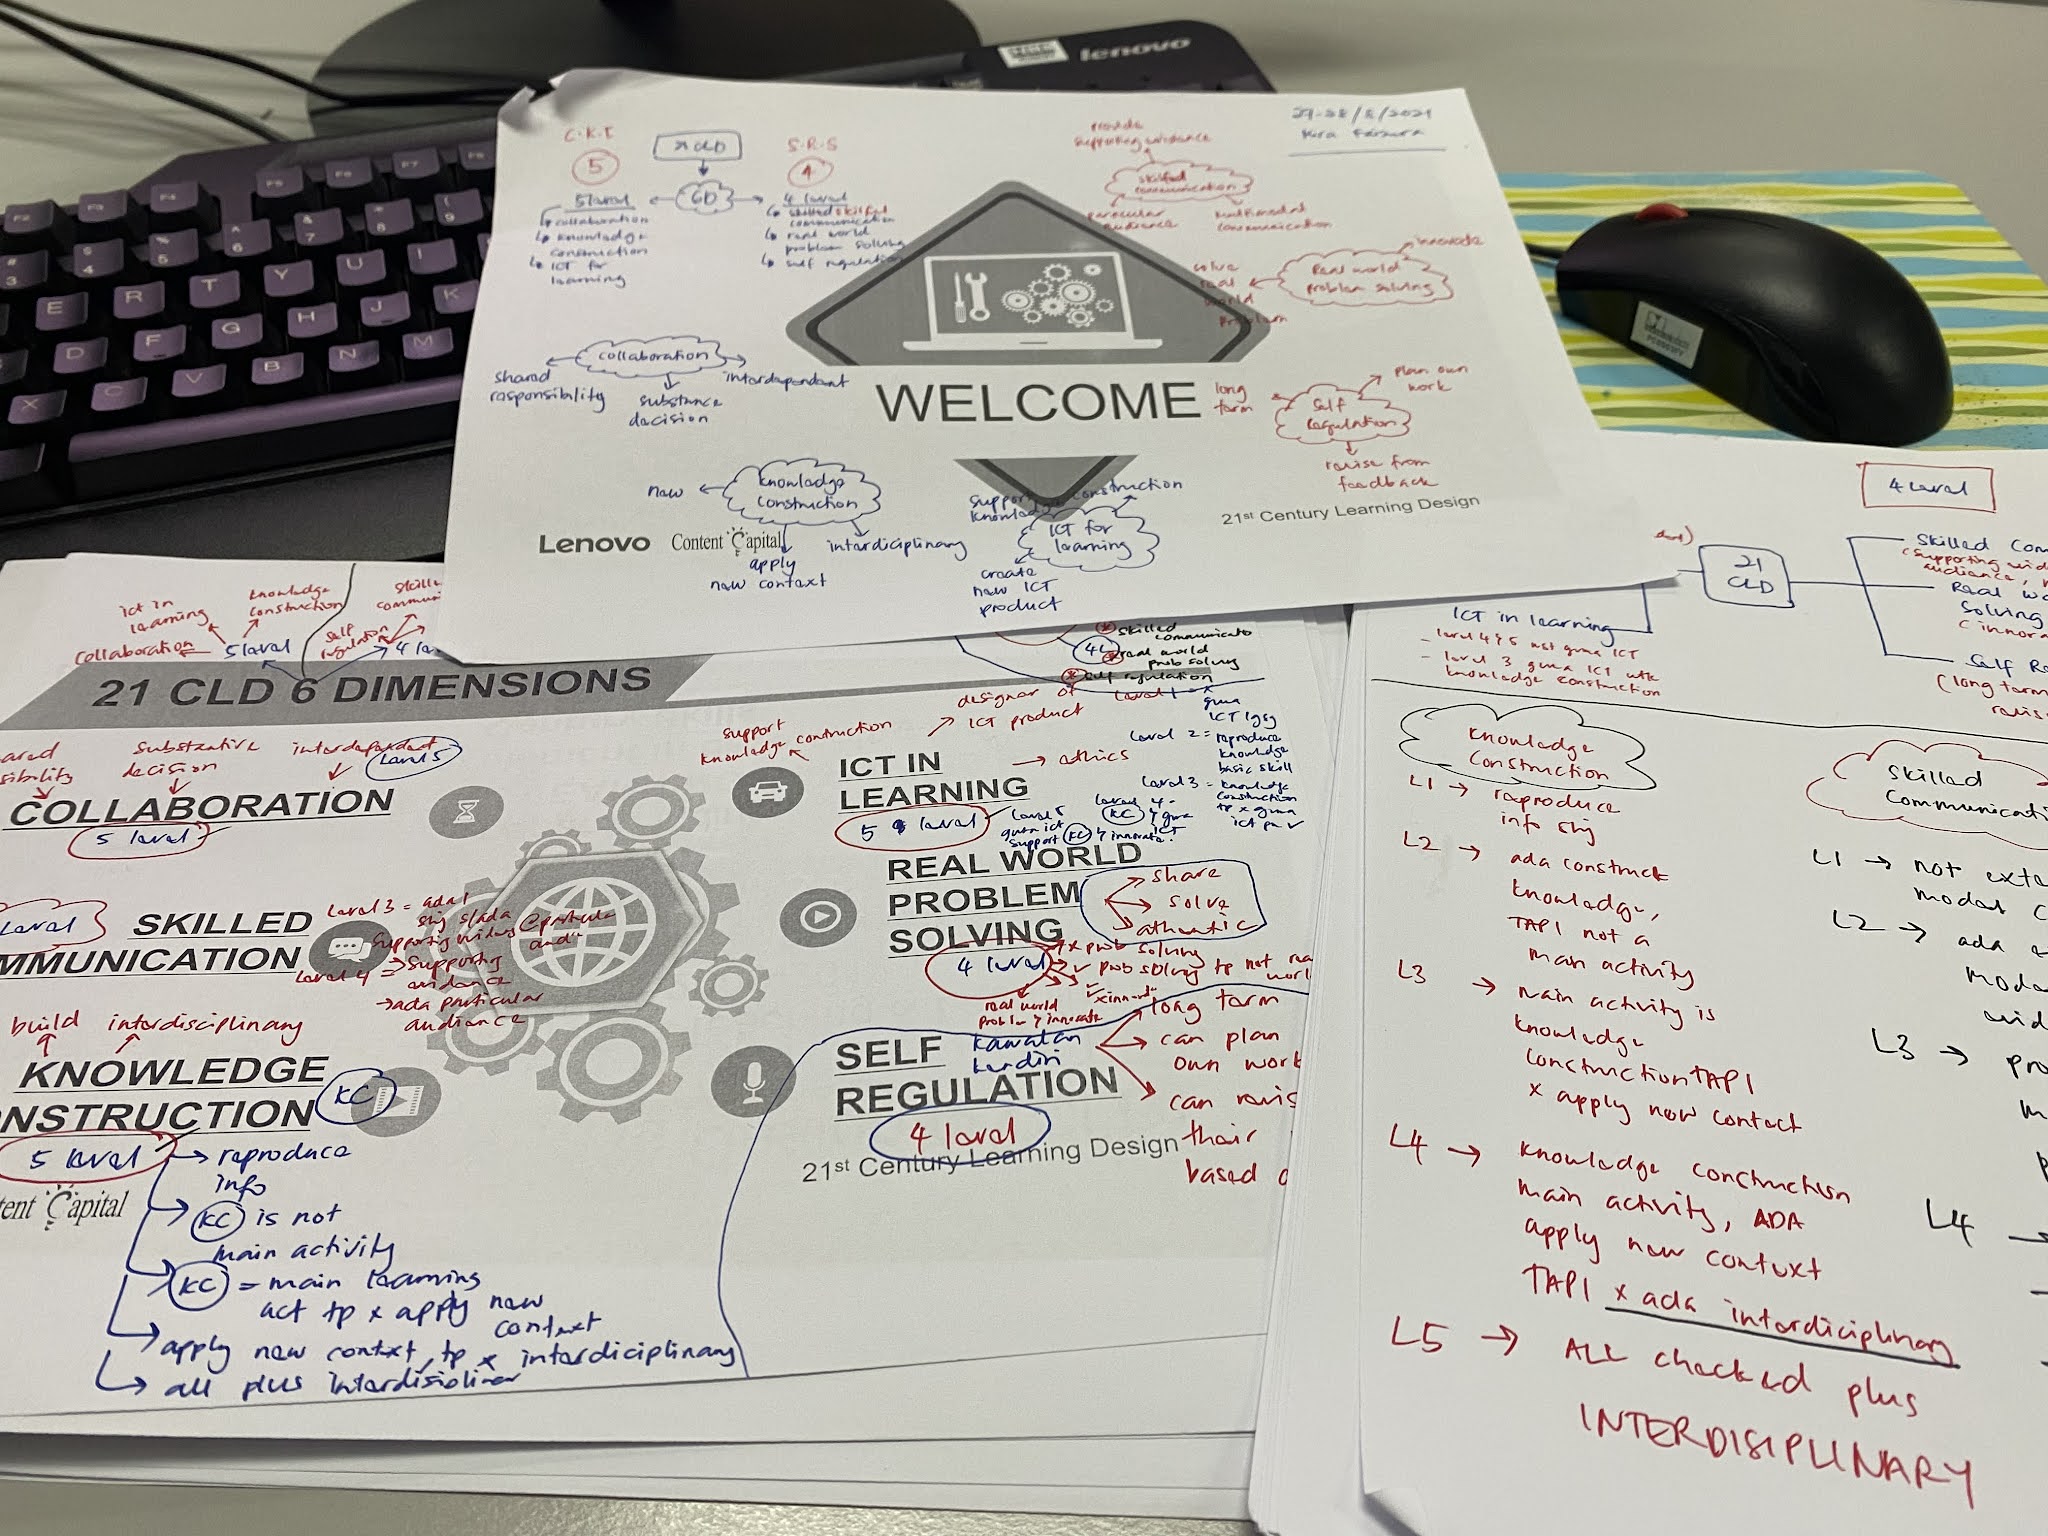 lenovo
27-28/5/2021
C.K.I
5
21 CLD
6D
S.R.S
4
5 level
collaboration
knowledge
construction
ICT for
learning
4 level
skilled skilful
communication
real world
problem solving
self regulation
provide
supporting evidence
skilled
communication
particular
audience
multimodal
communication
innovate
Real world
problem solving
solve
real
world
problem
collaboration
shared
responsibility
substance
decision
interdependent
WELCOME
long
term
self
regulation
plan own
work
revise from
feedback
knowledge
construction
new
apply
new context
interdiciplinary
support construction
knowledge
ICT for
learning
create
new ICT
product
Lenovo
Content Capital
21st Century Learning Design
ict in
learning
knowledge
construction
collaboration
5 level
self
regulation
4
21 CLD 6 DIMENSIONS
4L
skilled
communicatio
real world
prob solving
self regulation
substantive
decision
interdependent
Level 5
COLLABORATION
5 level
support
knowledge construction
designer of
ICT product
ethics
ICT IN
LEARNING
5 level
Level 2 = reproduce
knowledge
basic skill
Level 3 = knowledge
construction
REAL WORLD
PROBLEM
SOLVING
4 level
share
solve
athentic
x prob solving
prob solving tp not rea
real world
problem & innovate
SKILLED
MMUNICATION
Level 3 = ada1
Level 4 = supporting
evidence
ada particular
audience
build
interdisciplinary
KNOWLEDGE
NSTRUCTION
KC
5 level
reproduce
info
KC is not
main activity
KC = main learning
act tp x apply new
context
apply new context, tp x interdiciplinary
all plus interdisiplinar
tent Capital
SELF
REGULATION
kawalan
kendiri
4 level
long term
can plan
own work
can revis
their
based o
21st Century Learning Design
4 level
21
CLD
ICT in learning
- level 3 guna ICT utk
knowledge construction
Skilled Com
(supporting evid
audience,
Real wo
solving
(innova
Self Re
(long term
revis
Knowledge
Construction
L1 → reproduce
info shj
L2 → ada construct
knowledge,
TAPI not a
main activity
L3 → main activity is
knowledge
construction TAPI
x apply new contact
L4 → knowledge construction
main activity, ADA
apply new context
TAPI x ada interdiciplinary
L5 → ALL checked plus
INTERDISIPLINARY
Skilled
Communicati
L1 → not exte
modal c
L2 → ada
moda
evid
L3 → pro
L4 →